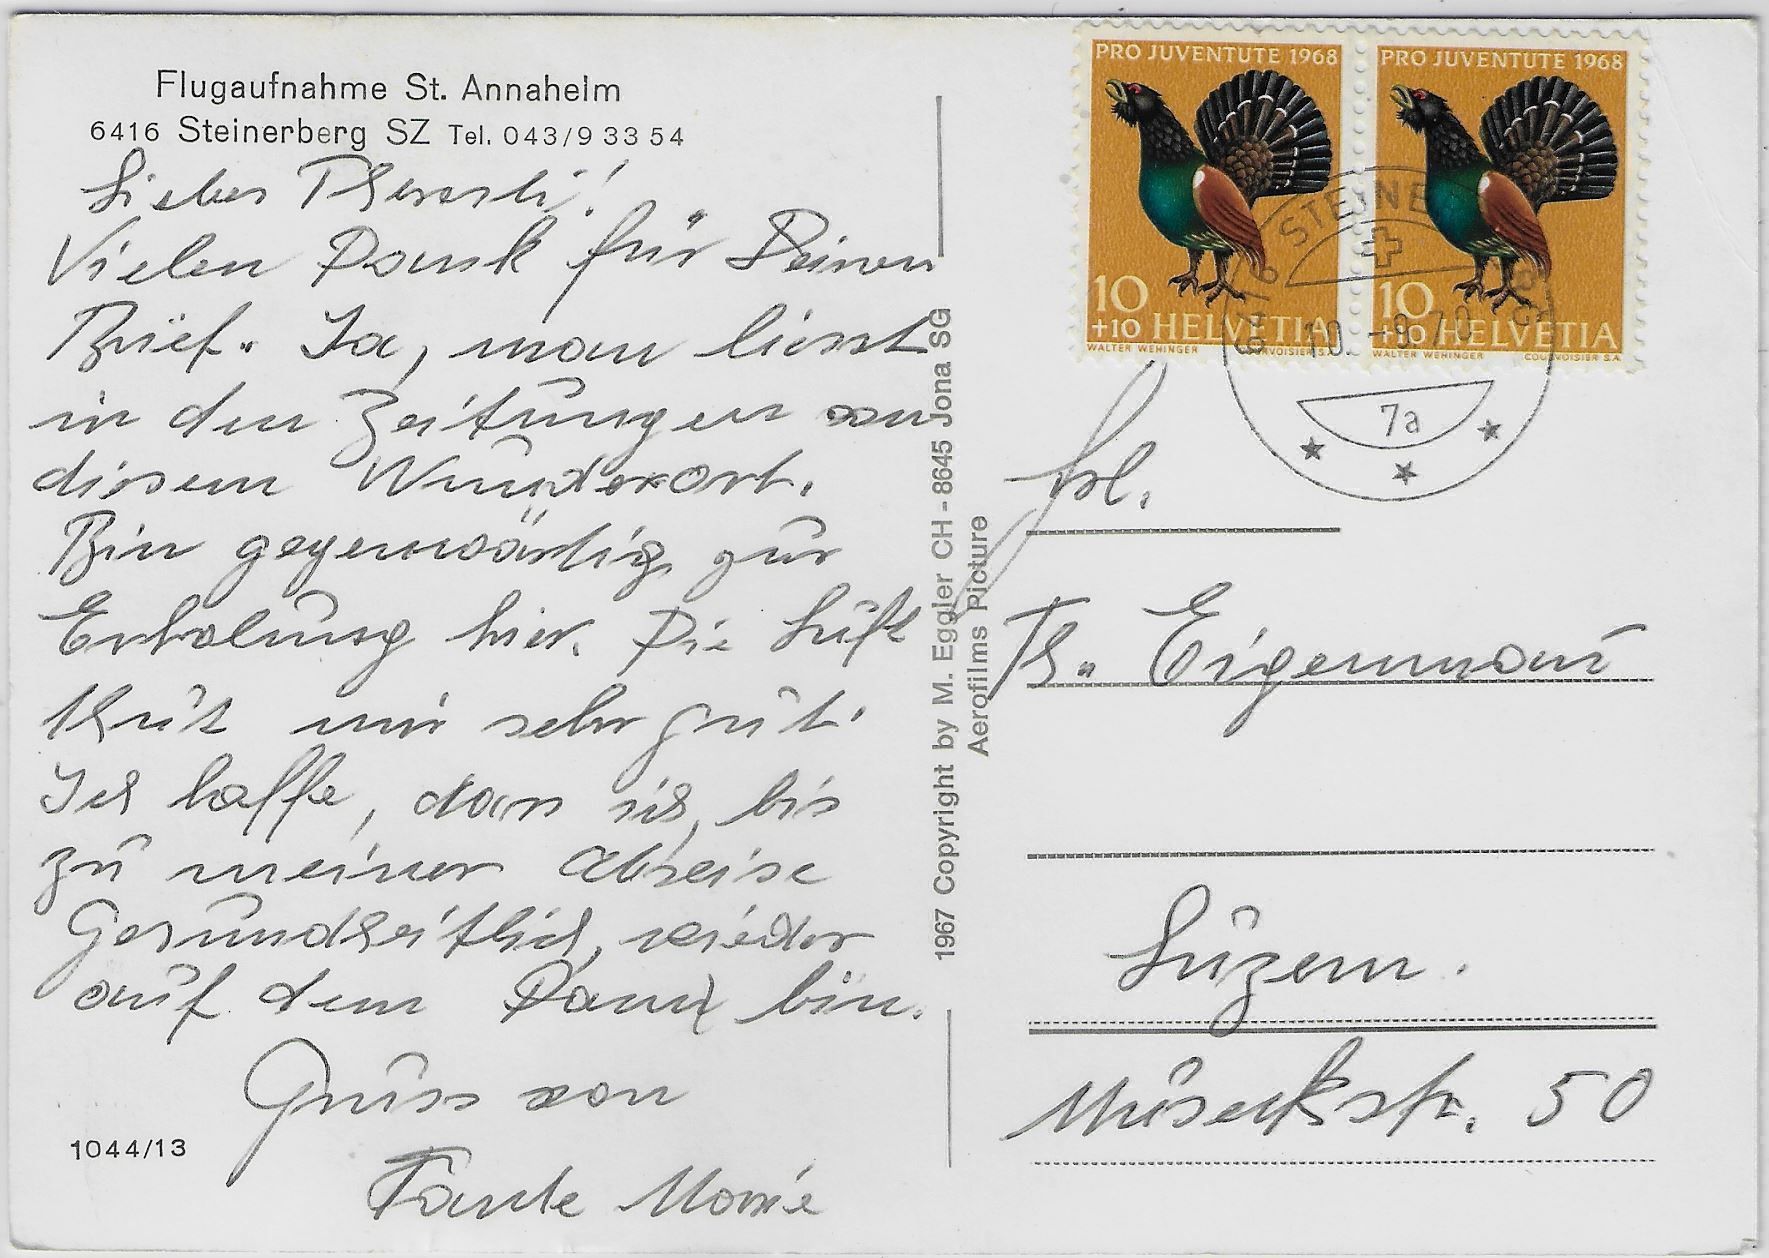 Flugaufnahme St. Annaheim
6416 Steinerberg SZ Tel. 043/9 33 54
Liebes Theresli!
Vielen Dank für Deinen
Brief. Ja, man liesst
in den Zeitungen von
diesem Wunderort.
Bin gegenwärtig zur
Erholung hier. Die Luft
thut mir sehr gut.
Ich hoffe, dass ich bis
zu meiner Abreise
Gesundheitlich wieder
auf dem Damm bin.
Gruss von
Tante Marie
1044/13
1967 Copyright by M. Eggler CH - 8645 Jona SG
Aerofilms Picture
PRO JUVENTUTE 1968
10
+10 HELVETIA
WALTER WEHINGER COURVOISIER S.A.
PRO JUVENTUTE 1968
10
+10 HELVETIA
WALTER WEHINGER COURVOISIER S.A.
6416 STEINERBERG
10. -9. 70
7a
Frl.
Th. Eigenmann
Luzern.
Museckstr. 50